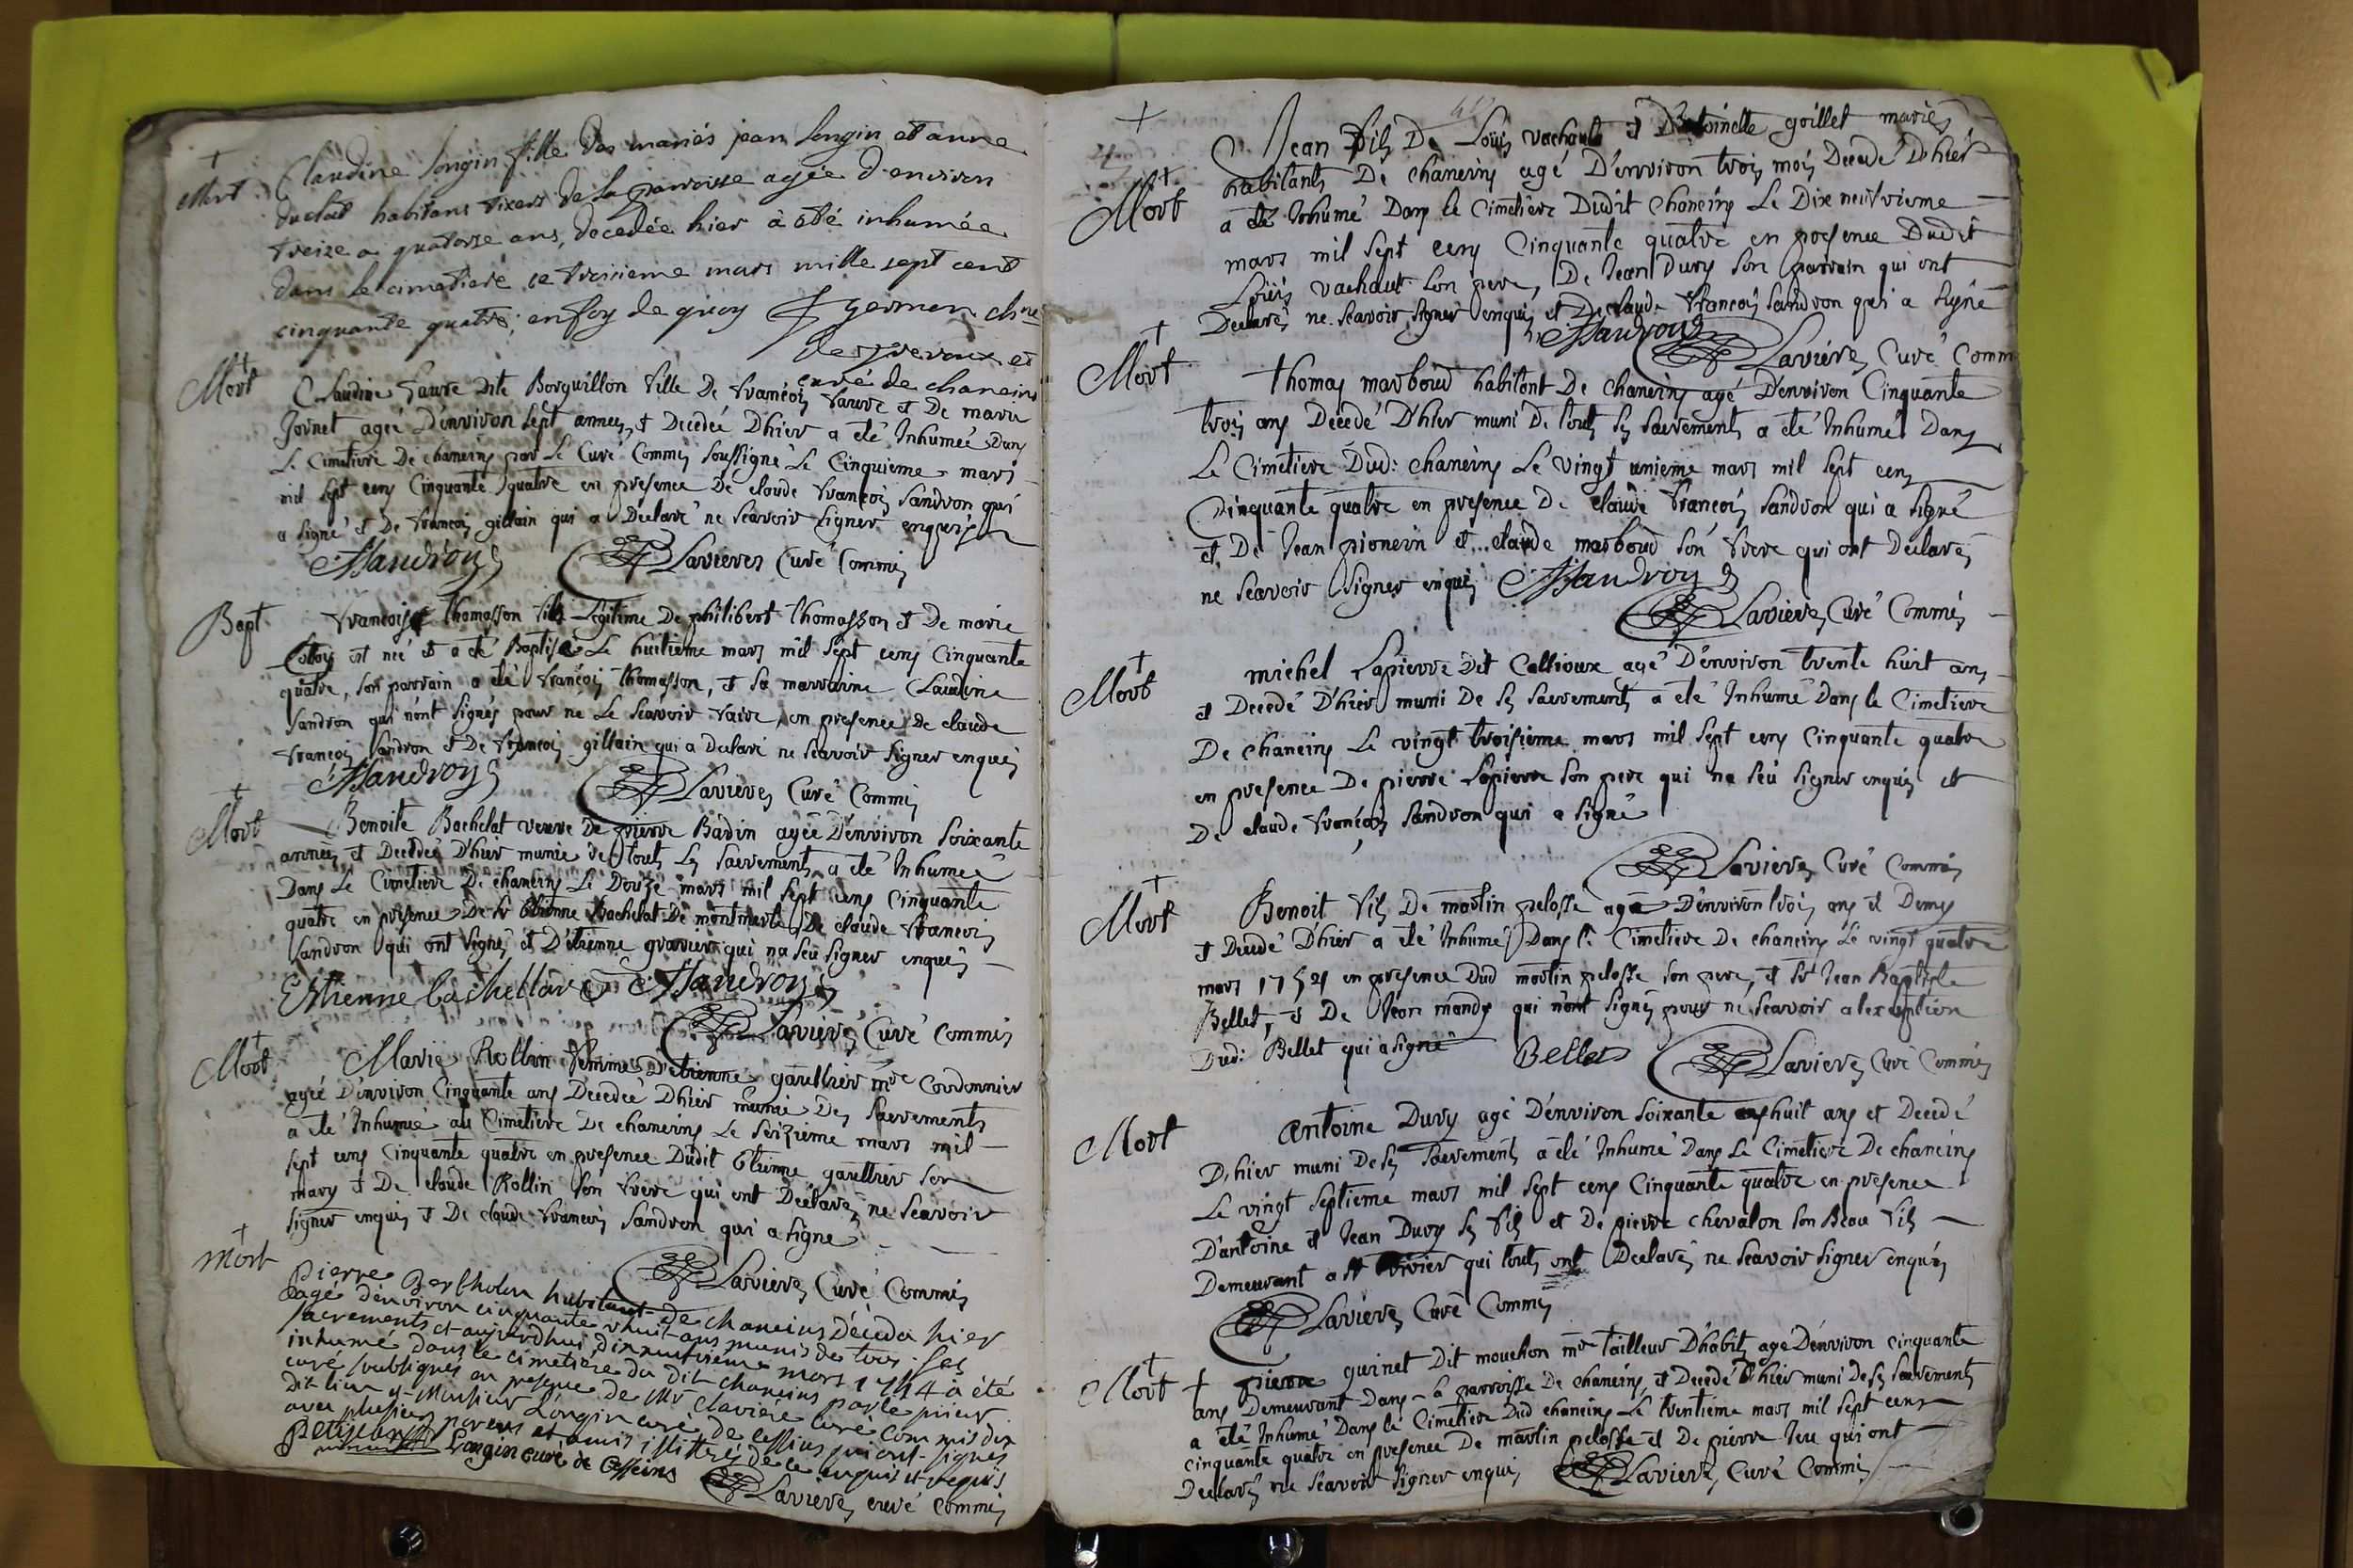 +
Mort
Claudine Longin fille des mariés jean Longin et anne
duclat habitans vixens de la parroisse agée d'environ
treize a quatorze ans, decedée hier à été inhumée
dans le cimetiere ce troisieme mars mille sept cent
cinquante quatre; en foy de quoy f germen chne
curé de chaneins
+
Mort
Claudine Favre dite Borguillon fille De francois favre et De marie
Jornet agée D'environ sept années et Decedée D'hier a eté Inhumée Dans
Le Cimetiere De chaneins par Le Curé Commis soussigné Le Cinquieme mars
mil sept cens Cinquante quatre en presence De claude francois sandron qui
a signé et De francois gillain qui a Declaré ne scavoir signer enquis
Sandrons Lavieres Curé Commis
Bapt
francois thomasson fils Legitime De philibert thomasson et De marie
est né et a eté Baptisé Le huitieme mars mil sept cens Cinquante
quatre, son parrain a eté francois thomasson, et sa marraine Claudine
sandron qui n'ont signés pour ne Le scavoir faire, en presence de claude
francois sandron et De francois gillain qui a declaré ne scavoir signer enquis
Sandrons Lavieres Curé Commis
+
Mort
Benoite Bachelat veuve De pierre Badin agée D'environ soixante
années et Decedée D'hier munie de touts ses sacrements a eté Inhumée
Dans Le Cimetiere De chaneins Le Douze mars mil sept cens Cinquante
quatre en presence De Sr Etienne Bachelat De montmerle, De claude francois
sandron qui ont signé et D'etienne gravier qui na seu signer enquis
Etienne bachellard Sandrons
Lavieres Curé Commis
+
Mort
Marie Rollin femme D'etienne gaulthier mre Cordonnier
agée D'environ Cinquante ans Decedée D'hier munie Des sacrements
a eté Inhumée au Cimetiere De chaneins Le seizieme mars mil
sept cens Cinquante quatre en presence Dudit Etienne gaulthier son
mary et De claude Rollin son frere qui ont Declarés ne scavoir
signer enquis et De claude francois sandron qui a signé
Lavieres Curé Commis
+
mort
Pierre Bertholon habitant de chaneins décéda hier
agé d'environ cinquante huit ans munis de tous ses
sacrements et aujourd'hui dixneuvieme mars 1754 à été
inhumé dans le cimetière du dit chaneins par le prieur
curé soubsigné en presence de Mr Claviere curé commis du
dit lieu et Monsieur Longin curé de cesseins qui ont signés
avec plusieurs parens et amis illittrés de ce enquis et requis
Longin curé de Cesseins
Lavieres curé Commis
+
+
Mort
Jean fils De Louis vachaut et D'antoinette goillet mariés
habitants De chaneins agé D'environ trois mois Decedé D'hier
a eté Inhumé Dans le Cimetiere Dudit chaneins Le Dix neufvieme
mars mil sept cens Cinquante quatre en presence Dudit
Louis vachaut son pere, De Jean Dury son parrain qui ont
Declarés ne scavoir signer enquis et De claude francois sandron qui a signé
Sandrons
Lavieres Curé Comm
+
Mort
thomas marboud habitant De chaneins agé D'environ Cinquante
trois ans Decedé D'hier muni De touts ses sacrements a eté Inhumé Dans
Le Cimetiere Dud: chaneins Le vingt unieme mars mil sept cens
Cinquante quatre en presence De claude francois sandron qui a signé
et De Jean pionein et claude marboud son frere qui ont Declarés
ne scavoir signer enquis Sandrons
Lavieres Curé Commis
+
Mort
michel Lapierre Dit Callioux agé D'environ trente huit ans
et Decedé D'hier muni De ses sacrements a eté Inhumé Dans le Cimetiere
De chaneins Le vingt troisieme mars mil sept cens Cinquante quatre
en presence De pierre Lapierre son pere qui na seu signer enquis et
De claude francois sandron qui a signé
Lavieres Curé Commis
+
Mort
Benoit fils De martin pelosse agé D'environ trois ans et Demy
et Decedé D'hier a eté Inhumé Dans le Cimetiere De chaneins Le vingt quatre
mars 1754 en presence Dud martin pelosse son pere, et Sr Jean Baptiste
Bellet, et De Jean mandy qui n'ont signés pour ne scavoir a l'exception
Dud: Bellet qui a signé Bellet Lavieres Curé Commis
Mort
antoine Dury agé D'environ soixante huit ans et Decedé
D'hier muni De ses sacrements a eté Inhumé Dans Le Cimetiere De chaneins
Le vingt septieme mars mil sept cens Cinquante quatre en presence
D'antoine et Jean Dury ses fils et De pierre chevalon son Beau fils
Demeurant a St trivier qui touts ont Declarés ne scavoir signer enquis
Lavieres Curé Commis
+
Mort +
pierre guinet Dit mouchon mre tailleur D'habits agé D'environ cinquante
ans Demeurant Dans la parroisse De chaneins et Decedé D'hier muni De ses sacrements
a eté Inhumé Dans le Cimetiere Dud chaneins Le trentieme mars mil sept cens
cinquante quatre en presence De martin pelosse et De pierre qui ont
Declarés ne scavoir signer enquis Lavieres Curé Commis